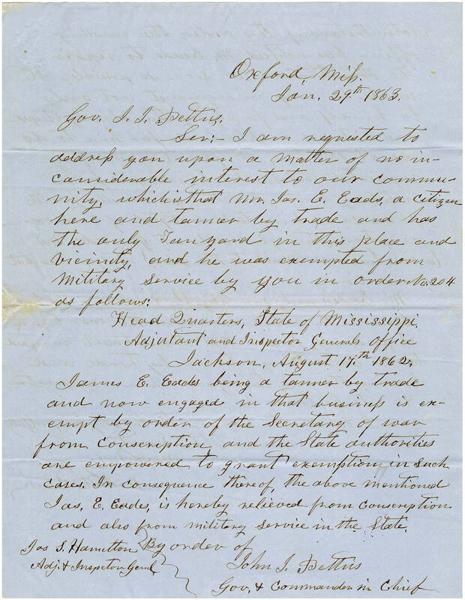 Oxford, Miss.
Jan. 29th 1863.
Gov. J. J. Pettus,
Sir:- I am requested to
address you upon a matter of no in-
considerable interest to our commu-
nity, which is that Mr. Jas. E. Eads, a citizen
here and tanner by trade and has
the only Tanyard in this place and
vicinity, and he was exempted from
Military service by you in order No. 204
as follows:
Head Quarters, State of Mississippi,
Adjutant and Inspector Generals Office
Jackson, August 17th 1862.
James E. Eades being a tanner by trade
and now engaged in that business is ex-
empt by order of the Secretary of war
from Conscription and the State authorities
are empowered to grant exemption in such
cases. In consequence thereof, the above mentioned
Jas. E. Eades, is hereby relieved from Conscription
and also from Military Service in the State.
Jas S. Hamilton By order of
Adj. & Inspector Genl John J. Pettus
Gov. & Commander in Chief